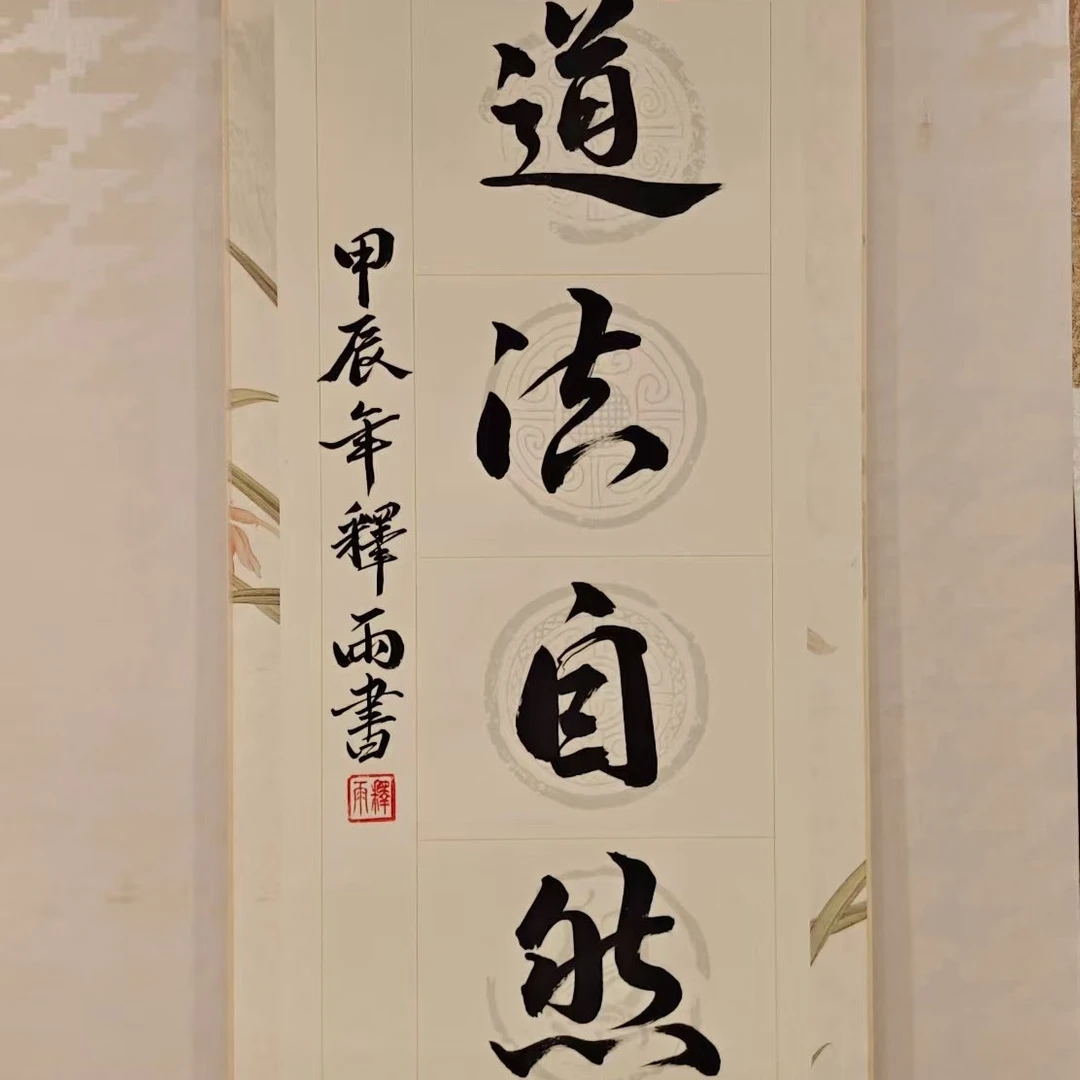 道法自然
甲辰年釋雨書
釋雨